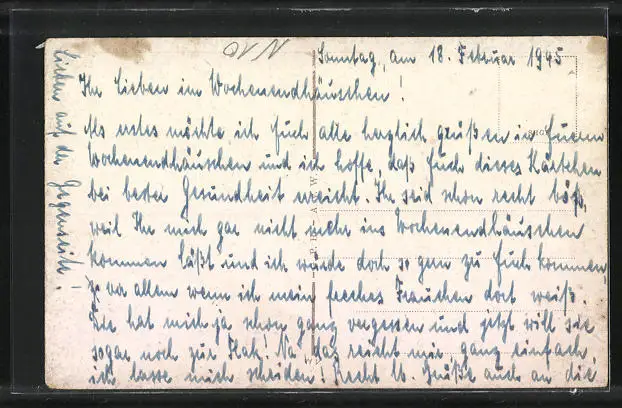 Sonntag, am 18. Februar 1945
Ihr Lieben im Wochenendhäuschen!
Als erstes möchte ich Euch alle herzlich grüßen in Euerm
Wochenendhäuschen und ich hoffe, daß Euch dieses Kärtchen
bei bester Gesundheit erreicht. Ihr seid schon recht böß,
weil Ihr mich gar nicht mehr ins Wochenendhäuschen
kommen läßt und ich würde doch so gern zu Euch kommen,
ja vor allem wenn ich mein fesches Frauchen dort weiß.
Sie hat mich ja schon ganz vergessen und jetzt will sie
sogar noch zur Flak! Na, das reicht mir ganz einfach,
ich lasse mich scheiden! Recht lb. Grüße auch an die
Lieben auf der Gegenseite!